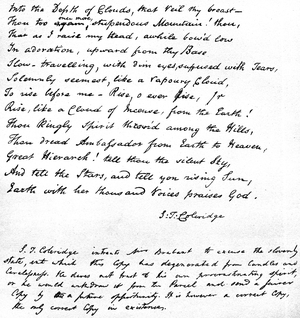 Into the Depth of Clouds, that Veil thy breast—
Thou too again, once more, stupendous Mountain! thou,
That as I raise my Head, awhile bow'd low
In adoration, upward from thy Base
Slow-travelling, with dim eyes suffused with Tears,
Solemnly seemest, like a Vapoury Cloud,
To rise before me—Rise, O ever Rise,
Rise, like a Cloud of Incense, from the Earth!
Thou kingly Spirit thron'd among the Hills,
Thou dread Ambassador from Earth to Heaven,
Great Hierarch! tell thou the silent Sky,
And tell the Stars, and tell yon rising Sun,
Earth with her thousand Voices praises God.
S.T. Coleridge
S. T. Coleridge intreats Mrs Brabant to excuse the slovenly
state, into which this Copy has degenerated from Candles and
Carelessness. He dares not trust to his own procrastinating spirit,
or he would withdraw it from the Parcel and send a fairer
Copy by a future opportunity. It is however a correct Copy,
the only correct Copy in existence.